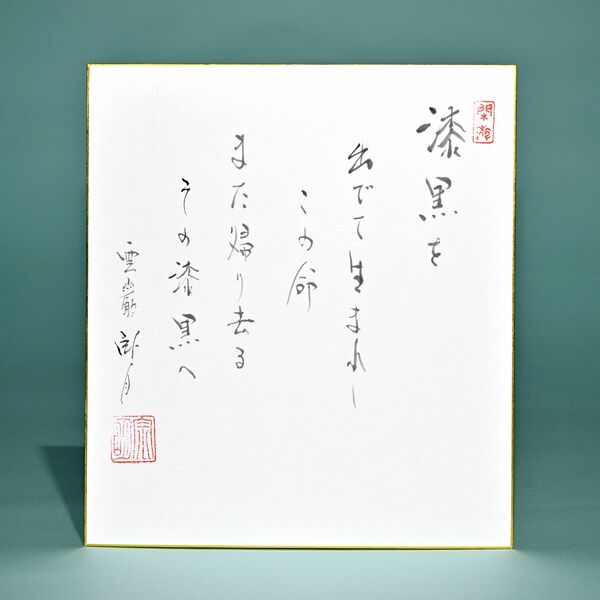 漆黒を
出でて生まれし
この命
また帰り去る
その漆黒へ
雲巌 卧月